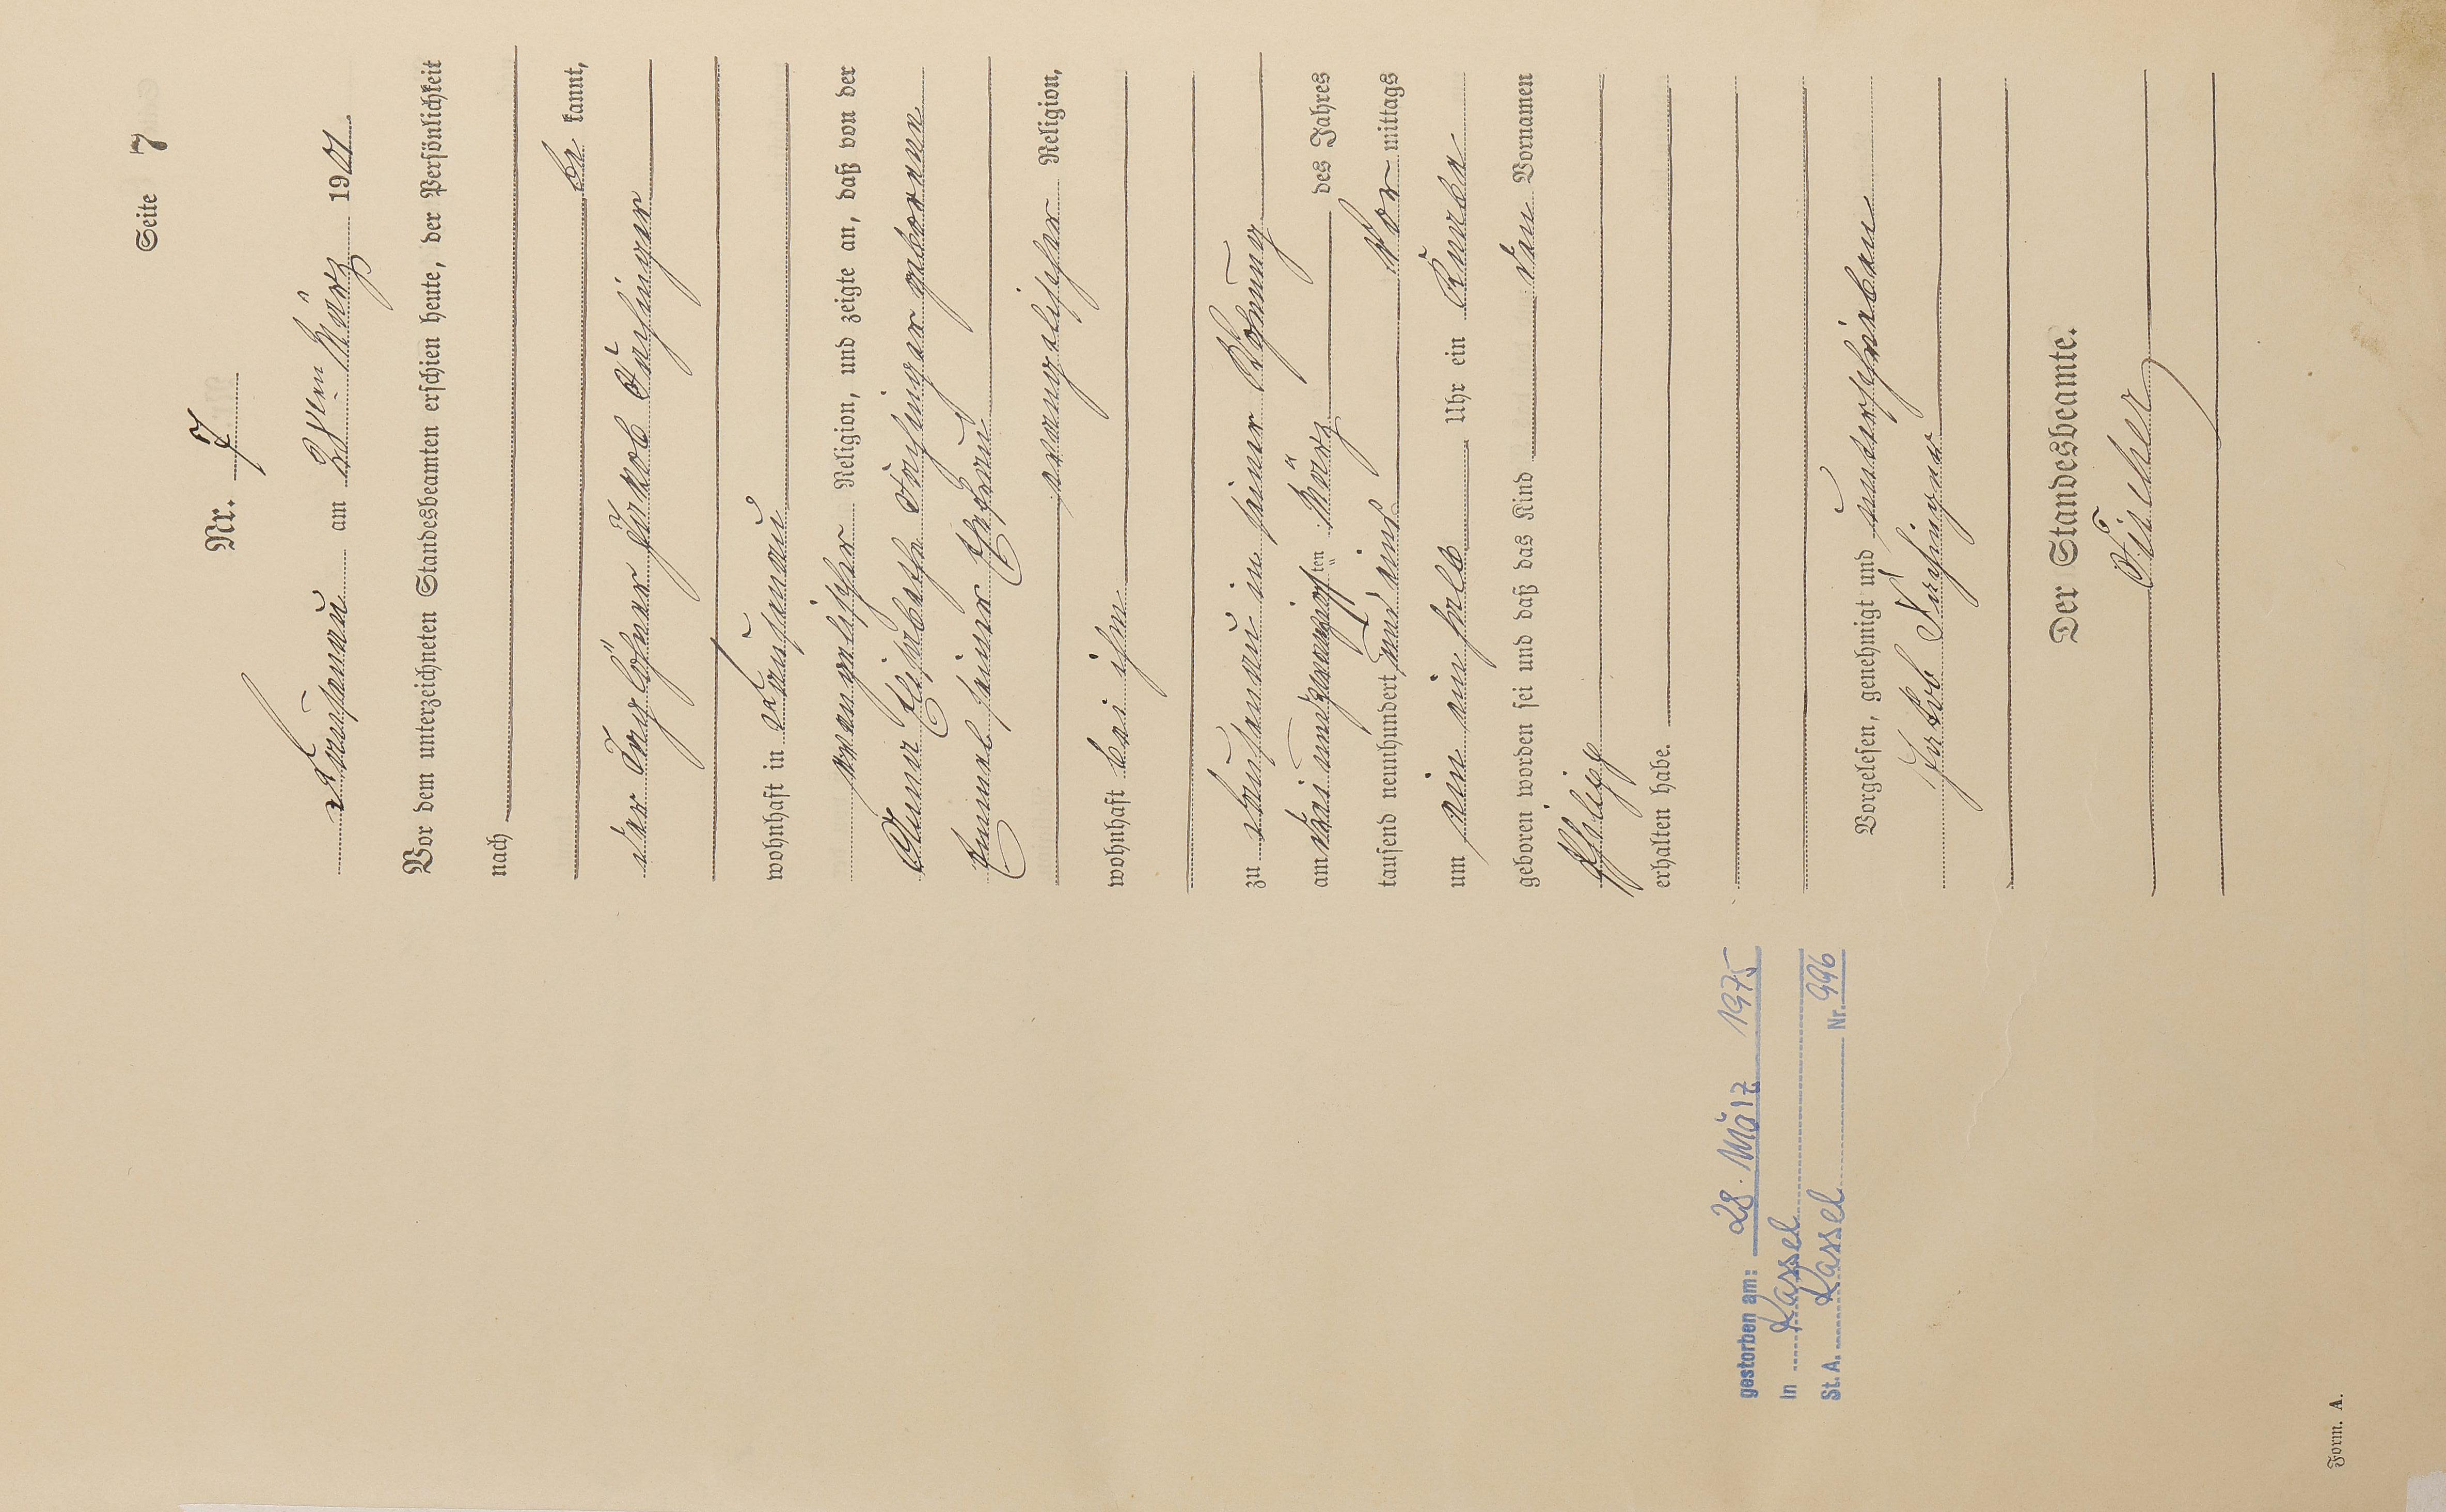 Seite 7
Nr. 7
am 28ten März 1901.
Vor dem unterzeichneten Standesbeamten erschien heute, der Persönlichkeit
nach
be kannt,
der Tagelöhner Jakob
wohnhaft in
evangelischer Religion, und zeigte an, daß von der
Anna Elisabethe geborenen
seiner Ehefrau
evangelischer Religion,
wohnhaft bei ihm
zu in seiner Wohnung
am dreiundzwanzigsten März des Jahres
tausend neunhundert und eins Vor mittags
um ein halb Uhr ein Knabe
geboren worden sei und daß das Kind den Vornamen
Philipp
erhalten habe.
Vorgelesen, genehmigt und unterschrieben
Jakob
Der Standesbeamte.
Fischer
gestorben am: 28. März 1975
In Kassel
St. A. Kassel Nr. 996
Form. A.